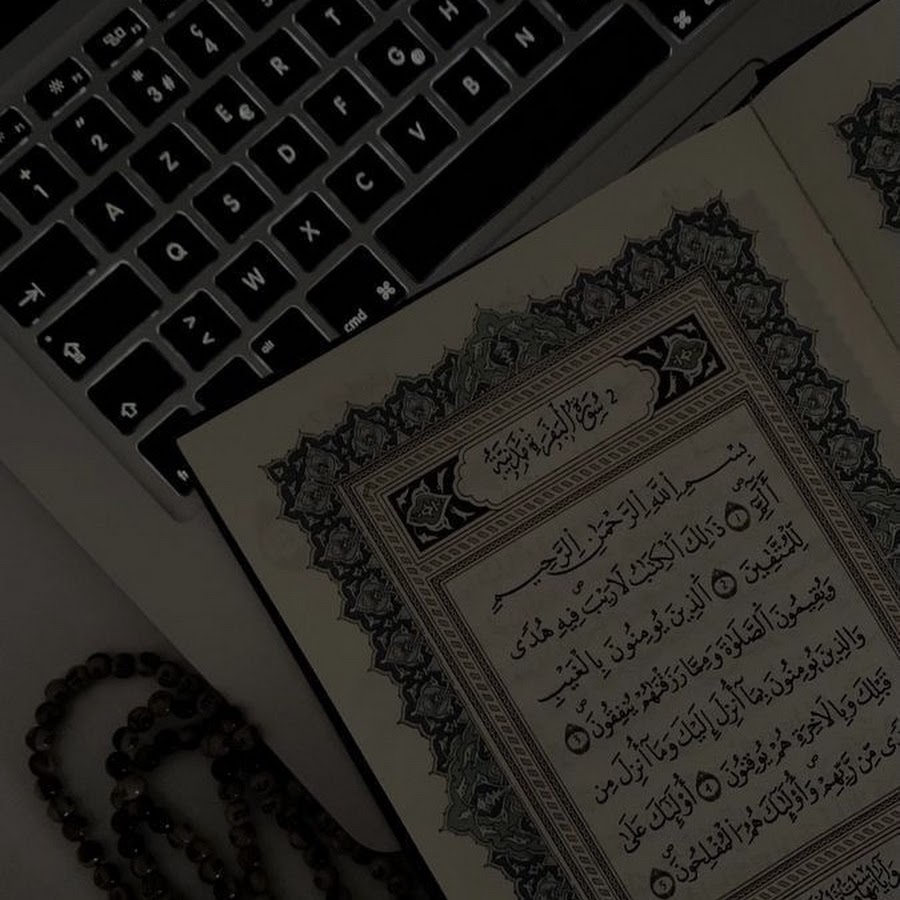 Ç 4 T H ⌘
* " 3 # R G @ N
" 2 E € F B
+ 1 Z D V
A S C
Q X
W ⌘
> < alt cmd
fn
2 سُورَةُ الْبَقَرَةِ مَدَنِيَّةٌ
بِسْمِ اِللَّهِ اِلرَّحْمَٰنِ اِلرَّحِيمِ
أَلَٓمِّٓ ١ ذَٰلِكَ اَلْكِتَٰبُ لَا رَيْبَ فِيهِ هُدىً
لِّلْمُتَّقِينَ ٢ اَلذِينَ يُومِنُونَ بِالْغَيْبِ
وَيُقِيمُونَ اَلصَّلَوٰةَ وَمِمَّا رَزَقْنَٰهُمْ يُنفِقُونَ ٣
وَالذِينَ يُومِنُونَ بِمَآ أُنزِلَ إِلَيْكَ وَمَآ أُنزِلَ مِن
قَبْلِكَ وَبِالَاخِرَةِ هُمْ يُوقِنُونَ ٤ أُوْلَٰٓئِكَ عَلَىٰ
هُدىً مِّن رَّبِّهِمْ وَأُوْلَٰٓئِكَ هُمُ اُلْمُفْلِحُونَ ٥